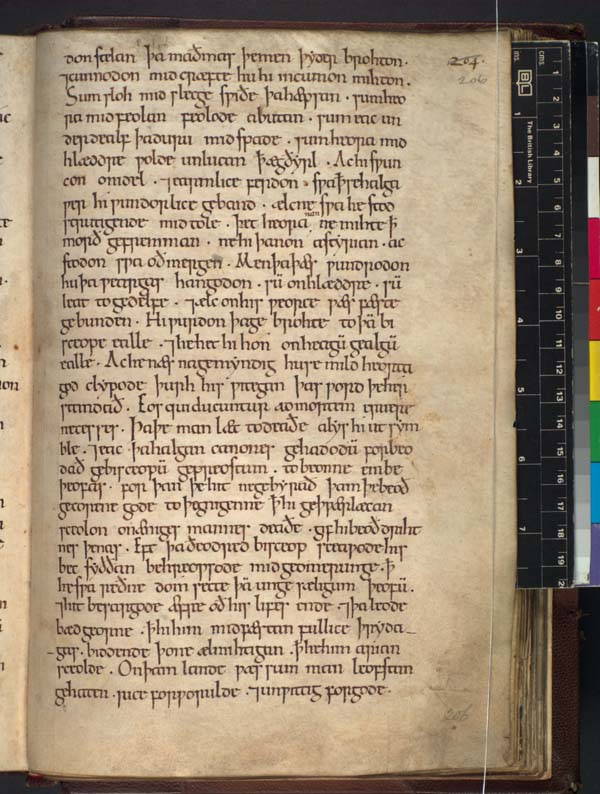 don stelan þa maðmas þe men þyder brohton .
⁊ cunnodon mid cræfte hu hi in cumon mihton .
Sum sloh mid slecge swiðe þa hæpsan . sum heo
ra mid feolan feolode abutan . sum eac un
derdealf þa duru mid spade . sum heora mid
hlæddre wolde unlucan þægðyrl . Ac hi swun
con on idel . ⁊ earmlice ferdon . swa þ se halga
wer hi wundorlice geband . ælcne swa he stod
strutigende mid tole . þæt heora nan ne mihte þ
morð gefremman . ne hi þanon astyrian . ac
stodon swa oð mergen . Men þa þæs wundrodon
hu þa weargas hangodon . sū on hlæddre . sū
leat to gedelfe . ⁊ ælc on his weorce wæs fæste
gebunden . Hi wurdon þa ge brohte to þā bi
sceope ealle . ⁊ he het hi hon on heagū gealgū
ealle . Ac he næs na gemyndig hu se mild heorta
god clypode þurh his witegan þas word þe her
standað . Eos qui ducuntur ad mortem eruere
ne cesses . Þa þe man læt to deaðe alys hi ut sym
ble . ⁊ eac þa halgan canones gehadodū forbeo
dað ge bisceopū ge preostum . to beonne embe
þeofas . for þan þe hit ne gebyrað þam þe beoð
gecorene gode to þegnigenne þ hi geþwærlæcan
sceolon on æniges mannes deaðe . gif hi beoð driht
nes þenas . Eft þa ðeodred bisceop sceawode his
bec syððan behreowsode mid geomerunge . þ
he swa reðne dom sette þā ungesæligum þeofū .
⁊ hit besargode æfre oð his lifes ende . ⁊ þa leode
bæd georne . þ hi him mid fæstan fullice þry da-
-gas . biddende þone ælmihtigan . þ he him arian
sceolde . On þam lande wæs sum man leofstan
gehaten . rice for worulde . ⁊ unwittig for gode .
204.
206
206
cms
BL
The British Library
1
2
3
4
5
6
7
8
9
10
11
12
13
14
15
16
17
18
19